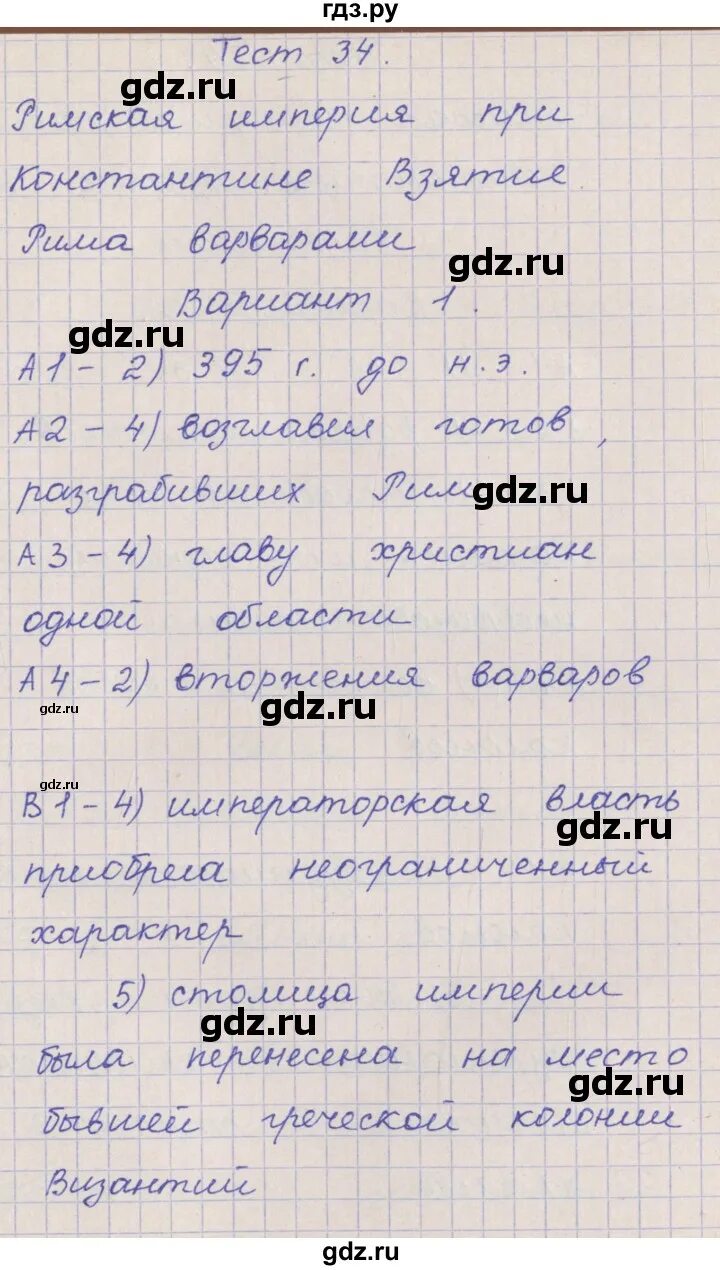 гдз.ру
Тест 34.
gdz.ru
Римская империя при
Константине. Взятие
Рима варварами
gdz.ru
Вариант 1.
gdz.ru
А1 - 2) 395 г. до н.э.
А2 - 4) возглавил готов,
разграбивших Рим
gdz.ru
А3 - 4) главу христиан
одной области
А4 - 2) вторжения варваров
gdz.ru
gdz.ru
gdz.ru
В1 - 4) императорская власть
gdz.ru
приобрела неограниченный
характер
5) столица империи
gdz.ru
была перенесена на место
gdz.ru
бывшей греческой колонии
Византий
gdz.ru